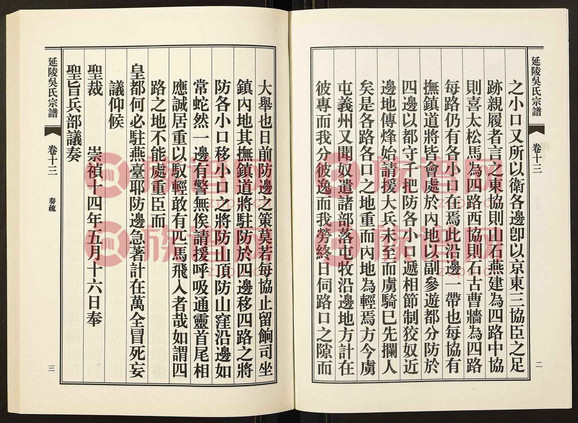 延陵吳氏宗譜
卷十三
二
之小口又所以衛各邊卽以京東三協臣之足
跡親履者言之東協則山石燕建為四路中協
則喜太松馬為四路西協則石古曹牆為四路
每路仍有各小口在焉此沿邊一帶也每協有
撫鎮道將皆會處於內地以副參遊都分防於
四邊以都守千把防各小口遞相節制狡奴近
邊地傳烽始請援大兵未至而虜騎已先攔人
矣是各路各口之地重而內地為輕焉方今虜
屯義州又聞奴遣諸部落屯牧沿邊地方計在
彼專而我分彼逸而我勞終日伺路口之隙而
大舉也日前防邊之策莫若每協止留餉司坐
鎮內地其撫鎮道將駐防於四邊移四路之將
防各小口移小口之將防山頂防山窪沿邊如
常蛇然一邊有警無俟請援呼吸通靈首尾相
應誠居重以馭輕敢有匹馬飛入者哉如謂四
路之地不能處重臣而
皇都何必駐燕臺耶防邊急著計在萬全冒死妄
議仰候
聖裁　崇禎十四年五月十六日奉
聖旨兵部議奏
延陵吳氏宗譜
卷十三
奏疏
三